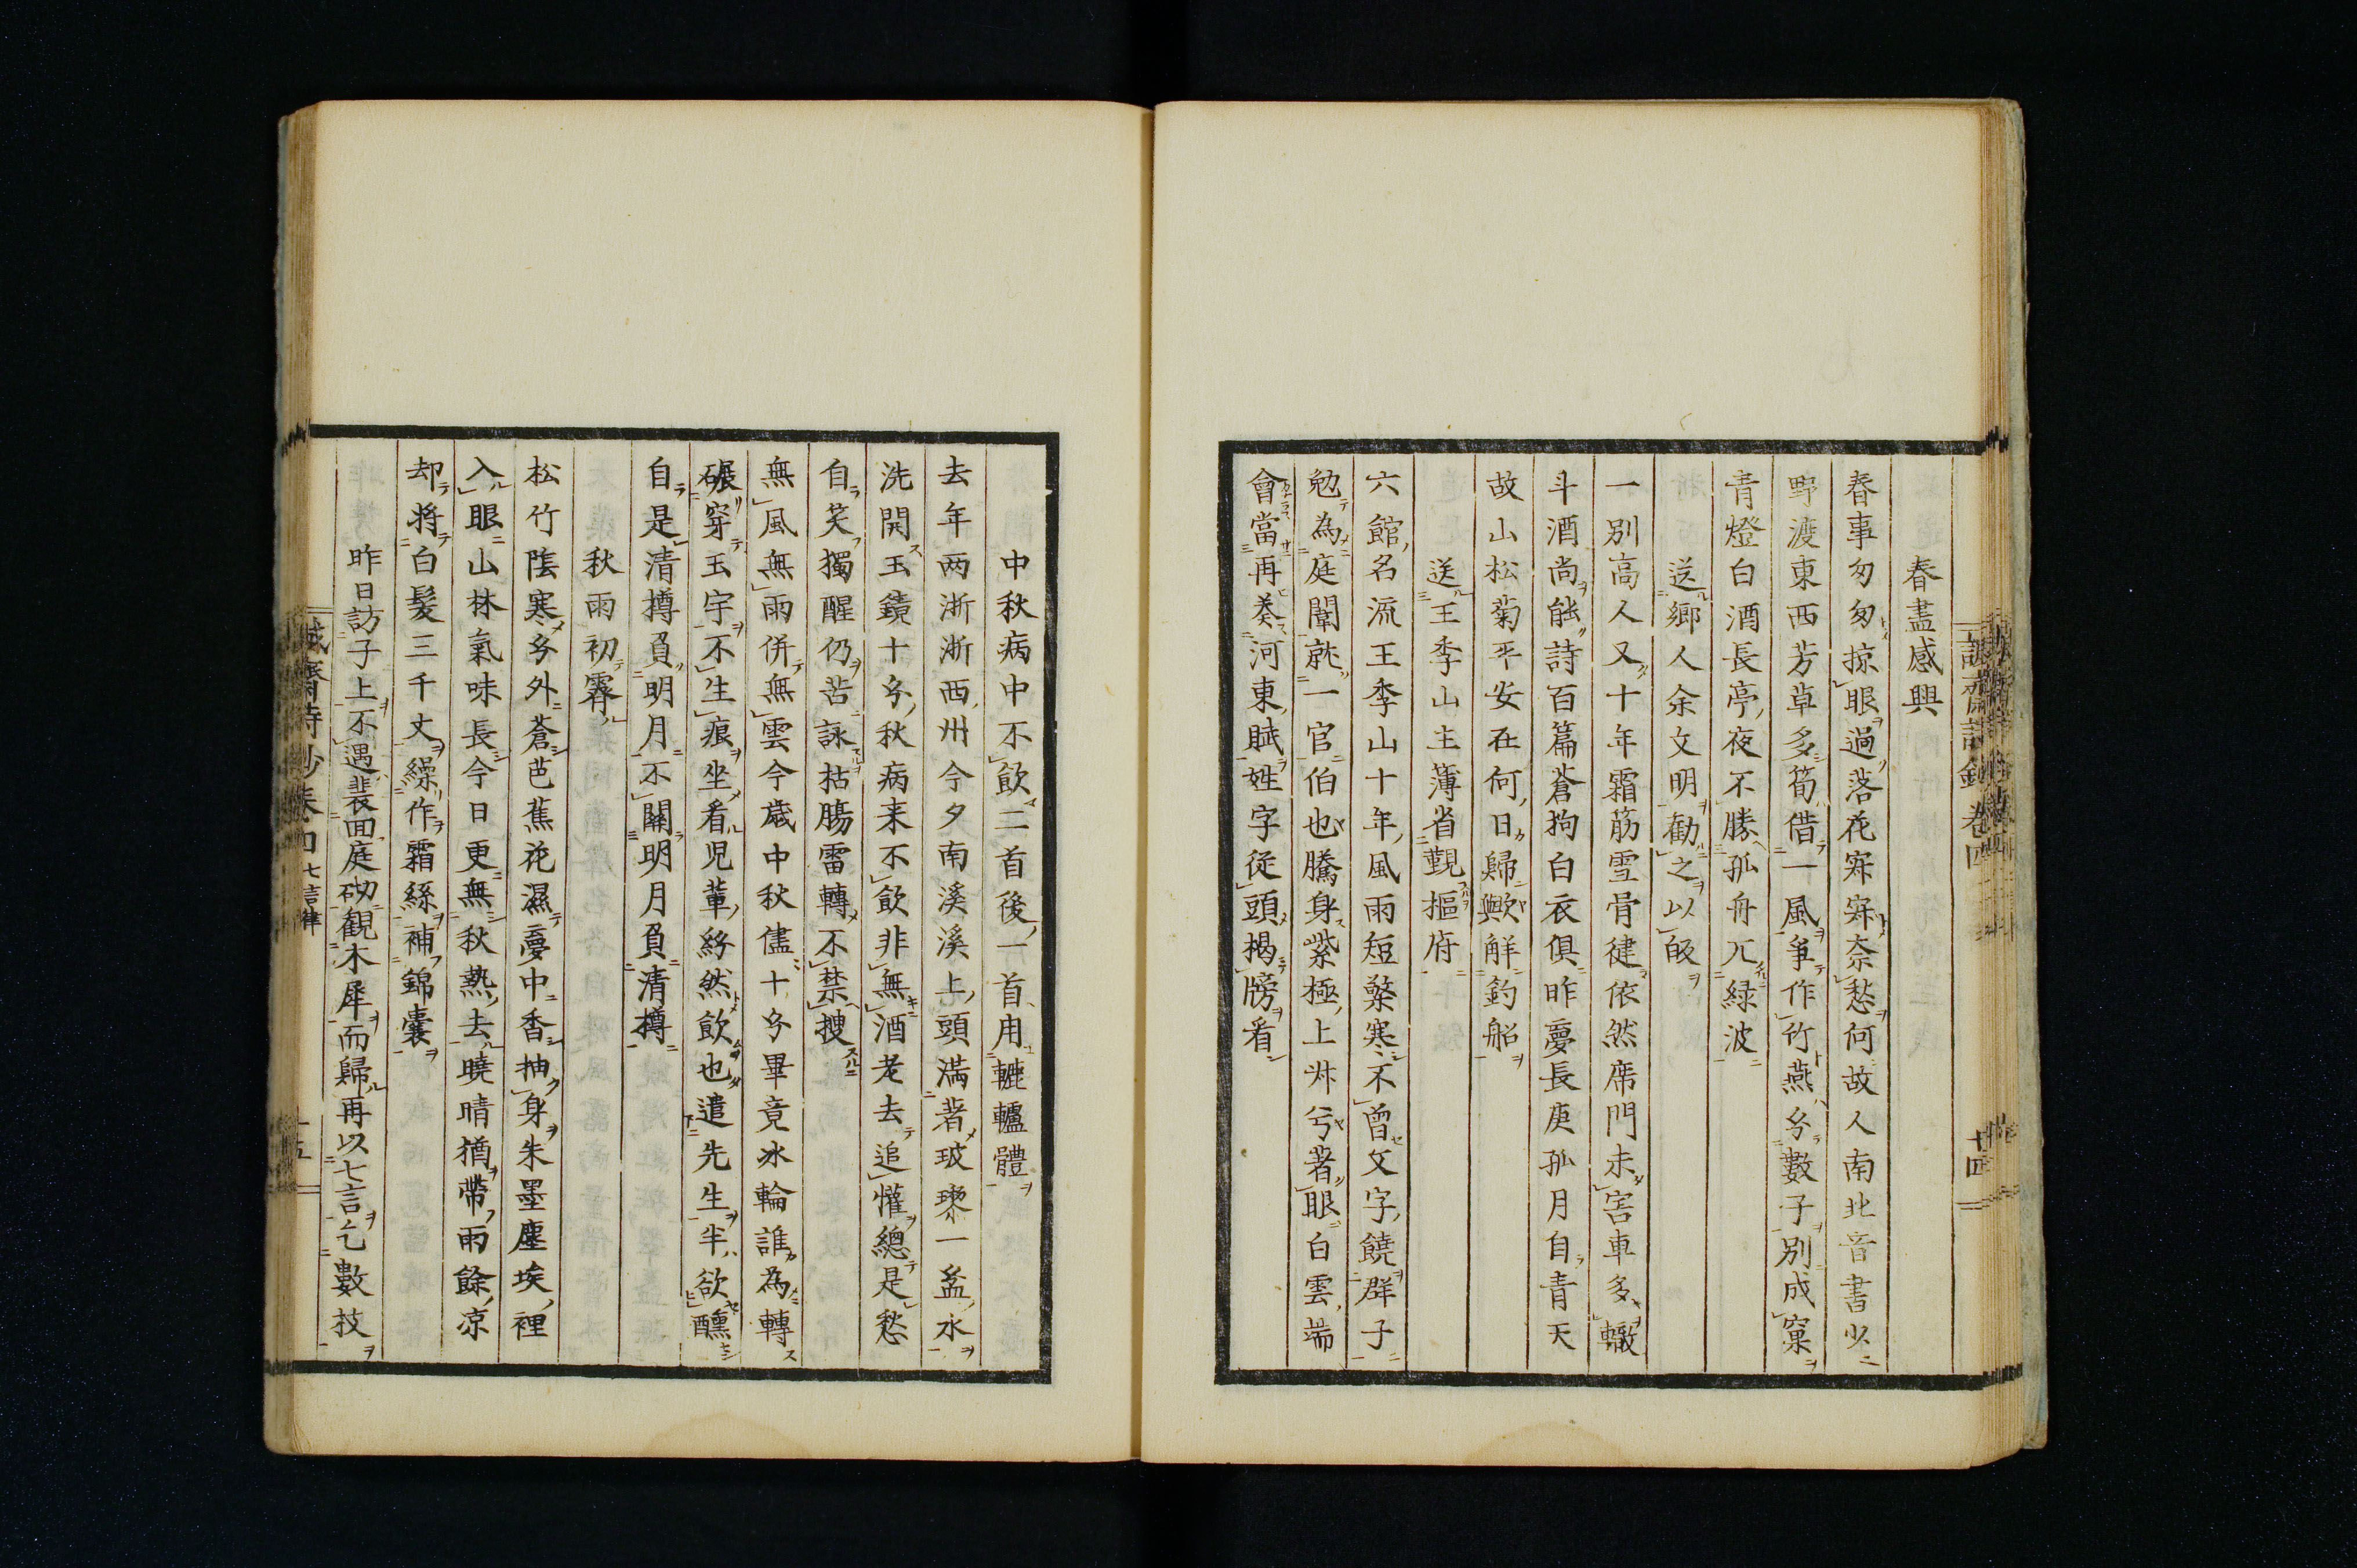 誠齋詩鈔 卷四
十四
春盡感興
春事匆匆掠眼過落花寂寂奈愁何故人南北音書少
野渡東西芳草多筍借一風爭作竹燕分數子別成窠
青燈白酒長亭夜不勝孤舟兀緑波
送郷人余文明勸之以皈
一別高人又十年霜筋雪骨健依然席門未害車多轍
斗酒尚能詩百篇蒼狗白衣俱昨夢長庚孤月自青天
故山松菊平安在何日歸歟解釣船
送王季山主薄省覲樞府
六館名流王季山十年風雨短檠寒不曾文字饒群子
勉為庭闈就一官伯也騰身紫極上叔兮著眼白雲端
會當再奏河東賦姓字従頭揭牓看
中秋病中不飲二首後一首用轆轤體
去年两浙浙西州今夕南溪溪上頭満著玻瓈一盃水
洗開玉鏡十分秋病来不飲非無酒老去追懽總是愁
自笑獨醒仍苦詠枯腸雷轉不禁搜
無風無雨併無雲今歳中秋儘十分畢竟冰輪誰為轉
碾穿玉宇不生痕坐看児輩紛然飲也遣先生半欲醺
自是清樽負明月不關明月負清樽
秋雨初霽
松竹陰寒分外蒼芭蕉花濕夢中香抽身朱墨塵埃裡
入眼山林氣味長今日更無秋熱去曉晴猶帶雨餘凉
却将白髪三千丈繰作霜絲補錦囊
昨日訪子上不遇裴回庭砌觀木犀而歸再以七言乞數枝
誠齋詩鈔 卷四 七言律
十五